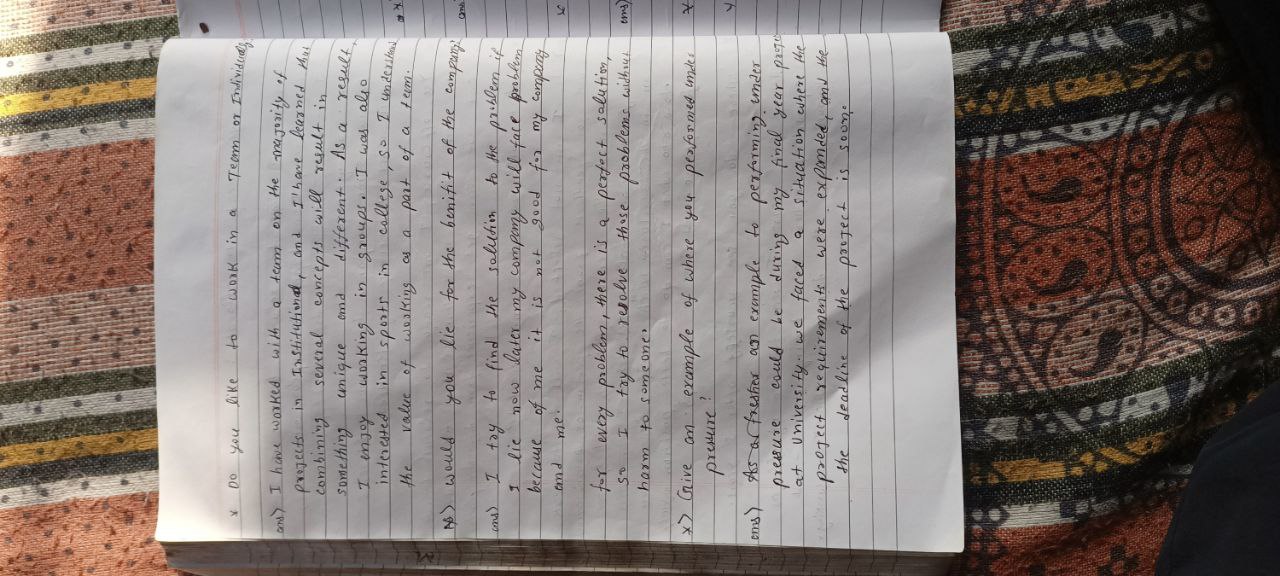 x Do you like to work in a Team or Individually.
ans) I have worked with a team on the majority of
projects in Institutional, and I'have learned that
combining several concepts will result in
something unique and different. As a result,
I enjoy working in groups. I was also
interested in sports in college, so I understand
the value of working as a part of a team.
would you lie for the benifit of the company?
ans) I try to find the solution to the problem if
I lie now later my company will face problem
because of me it is not good for my company
and me.
for every problem, there is a perfect solution,
so I try to resolve those problems without
harm to someone.
x) Give an example of where you performed under
pressure?
ans) As a fresher an example to performing under
pressure could be during my final year project
at University. we faced a situation where the
project requirements were expanded, and the
the deadline of the project is soon.
x
ans)
x
ans)
x